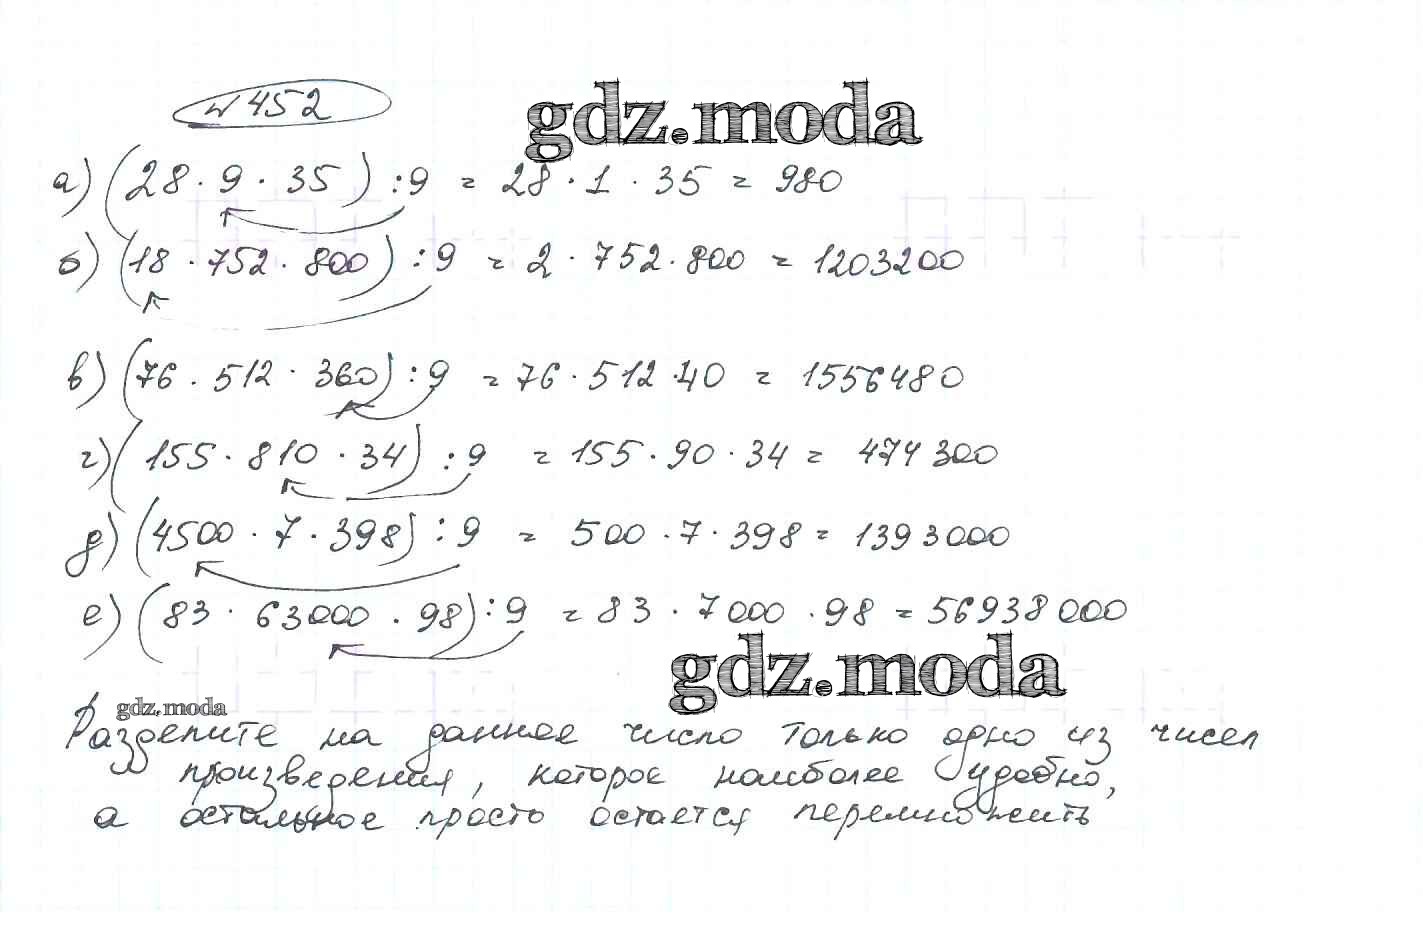 № 452
gdz.moda
а) (28 · 9 · 35) : 9 = 28 · 1 · 35 = 980
б) (18 · 752 · 800) : 9 = 2 · 752 · 800 = 1203200
в) (76 · 512 · 360) : 9 = 76 · 512 · 40 = 1556480
г) (155 · 810 · 34) : 9 = 155 · 90 · 34 = 474300
д) (4500 · 7 · 398) : 9 = 500 · 7 · 398 = 1393000
е) (83 · 63000 · 98) : 9 = 83 · 7000 · 98 = 56938000
gdz.moda
gdz.moda
Разделите на данное число только одно из чисел
произведения, которое наиболее удобно,
а остальное просто остается перемножить